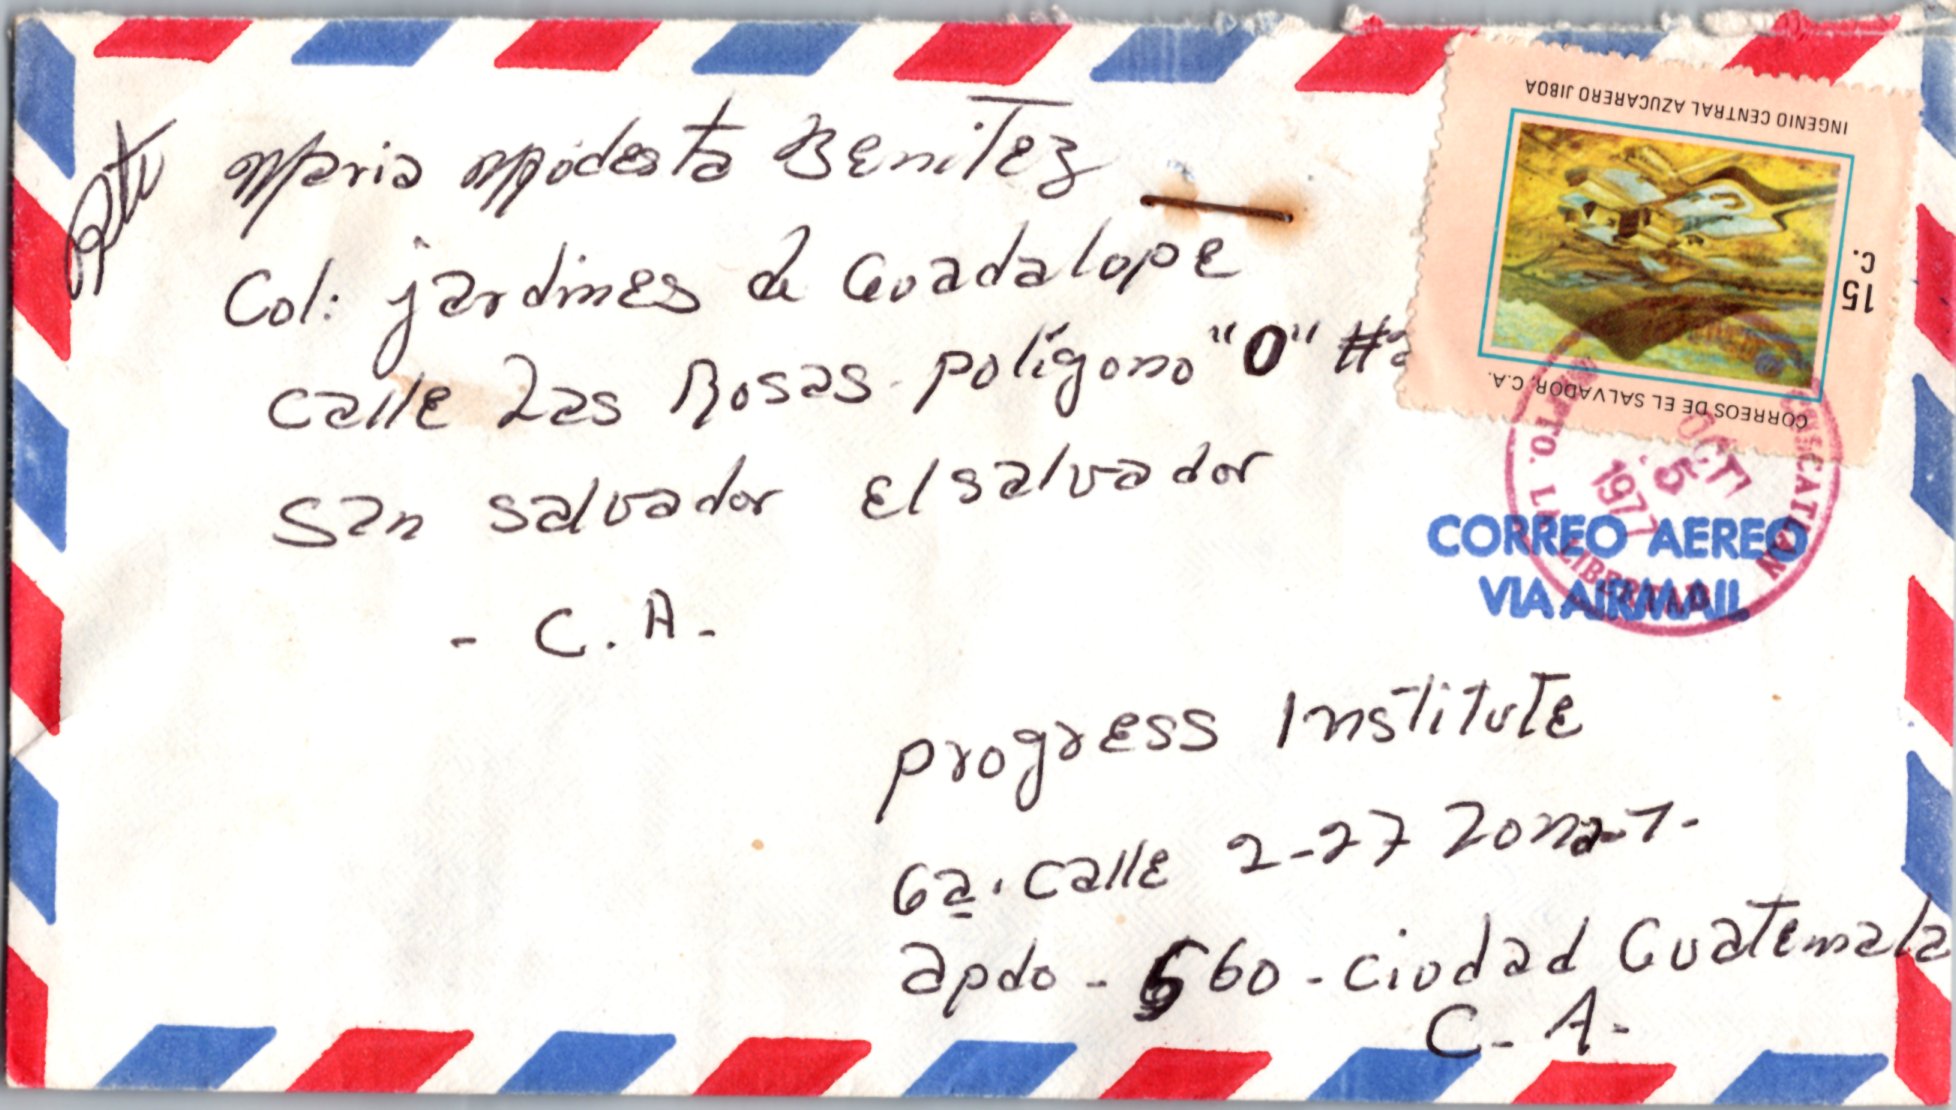 Rte
Maria Modesta Benitez
Col: jardines de Guadalope
calle Las Rosas - polígono "O" #
san salvador el salvador
- C. A -
INGENIO CENTRAL AZUCARERO JIBOA
15
C.
CORREOS DE EL SALVADOR, C.A.
OCT
5
1977
DPTO. LA LIBERTAD
CORREO AEREO
VIA AIRMAIL
progress Institute
6a. calle 2-27 Zona-1-
apdo - 660 - ciudad Guatemala
C- A-